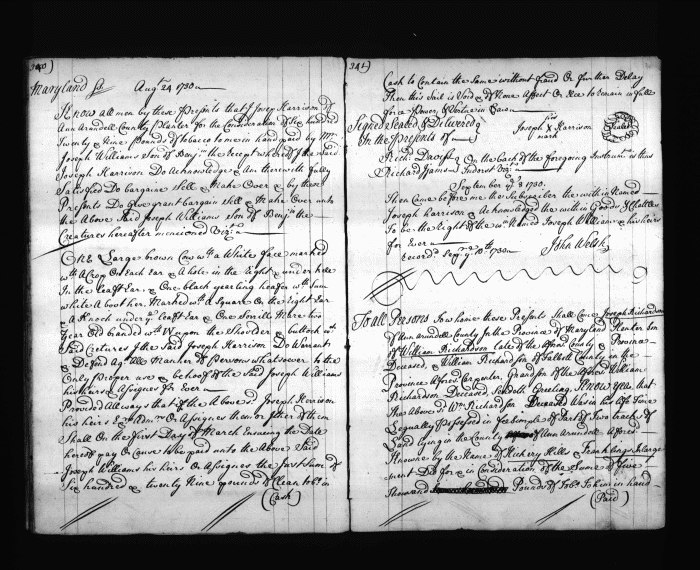 340)
Maryland ss. Augt. 24 1730
Know all men by these Presents that I Joseph Harrison of
Ann Arundell County Planter for the Consideration of Six hundred
Twenty & Nine Pounds of tobacco to me in hand paid by Mr.
Joseph Williams Son of Benja. the receipt whereof I the Said
Joseph Harrison Do Acknowledge & Am therewith fully
Satisfied Do bargaine Sell & Make Over & by these
Presents Do Give grant bargain Sell & Make Over unto
the Above Said Joseph Williams Son of Benja. the
Creatures hereafter mencioned Vizt.
One Large brown Cow wth. a White face marked
wth. a Crop On Each Ear & A hole in the Right & under
In the Leaft Ear, & One black yearling heafer wth. Sum
white About her, Marked wth. A Square On the Right Ear
A Knock under ye. Leaft Ear & One Sorrill Mare two
Year Old branded wth. W upon the Sholder & buttock wch.
Said Cretures I the Said Joseph Harrison Do Warrant
& Defend Agst. All Manner of Persons whatsoever to the
Only Proper use & behoof of the Said Joseph Williams
his heirs & Assignes for Ever
Provided Allways that if the Above Sd. Joseph Harrison
his heirs Exrs. Admrs. Or Assignes them or Either of them
Shall On the First Day of March Ensueing the Date
hereof pay Or Cause to be paid unto the Above Said
Joseph Williams his heirs Or Assignes the Just Sume of
Six hundred & twenty Nine pounds of Clean tobo. in
(Cash)
341)
Cash to Contain the Same without fraud Or further Delay
Then this Bill is Void & of None Affect Or Else to remain in full
force Power & Vertue in Law
Signed Sealed & Delivered
In the Presents of
his
Joseph X Harrison
mark
Seale
Richd. Davis
Richard Jams
On the back of the foregoing Instrumt. is thus
Indorst Vizt.
September ye. 8 1730.
Then Came before me the Subscriber the within Named
Joseph harrison & Acknowledged the within Goods & Chattles
To be the Right of the wth. Named Joseph Williams & his heirs
for Ever
John Welsh
Record. Sepr. ye. 10th. 1730
To all Persons To whome these Presents Shall Come Joseph Richardson
of Ann Arundell County In the Province of Maryland Planter Son
of William Richardson Late of the Afforsd County & Province
Deceased, & William Richardson of Talbott County in the
Province Afforsd. Carpenter, Grandson of the Afforsd William
Richardson Deceased, Sendeth Greeting. Know yea that
The Above Sd. Wm. Richardson Deceased Was in his Life Time
Legually Possessed in fee Simple of Part of Two tracts of
Land Lying in the County of Ann Arundell Afforsd
Knowne by the Name of Hickery Hills & Franklings Inlarge
ment And for & in Consideration of the Sume of five
Thousand Pounds of Tobo. To him in hand
(Paid)